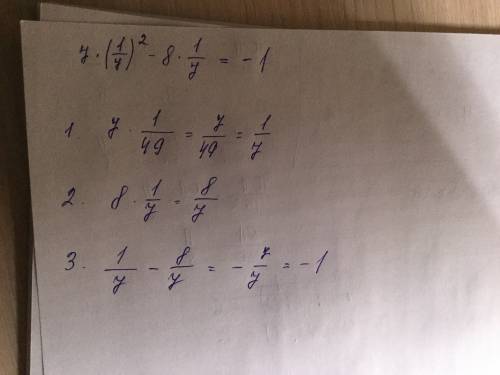 7 · (1/7)² - 8 · 1/7 = -1
1. 7 · 1/49 = 7/49 = 1/7
2. 8 · 1/7 = 8/7
3. 1/7 - 8/7 = - 7/7 = -1